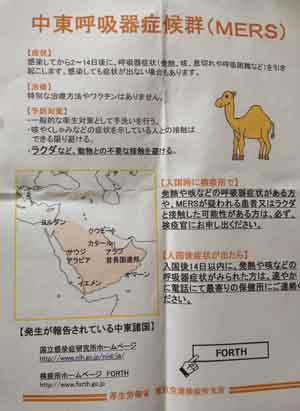 中東呼吸器症候群（MERS）
【症状】
感染してから2～14日後に、呼吸器症状（発熱、咳、息切れや呼吸困難など）を引き
起こします。感染しても症状が出ない場合もあります。
【治療】
特別な治療方法やワクチンはありません。
【予防対策】
・一般的な衛生対策として手洗いを行う。
・咳やくしゃみなどの症状を示している人との接触は
できる限り避ける。
・ラクダなど、動物との不要な接触を避ける。
【入国時に検疫所で】
発熱や咳などの呼吸器症状がある方
や、MERSが疑われる患者又はラクダ
と接触した可能性がある方は、必ず、
検疫官にお申し出ください。
ヨルダン
クウェート
カタール
サウジ
アラビア
アラブ
首長国連邦
オマーン
イエメン
【入国後症状が出たら】
入国後14日以内に、発熱や咳などの
呼吸器症状がみられた方は、速やか
に電話にて最寄りの保健所にご連絡く
ださい。
【発生が報告されている中東諸国】
国立感染症研究所ホームページ
http://www.nih.go.jp/niid/ja/
検疫所ホームページ FORTH
http://www.forth.go.jp
FORTH
厚生労働省